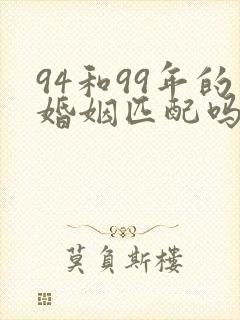 94和99年的
婚姻匹配吗
莫負斯樓